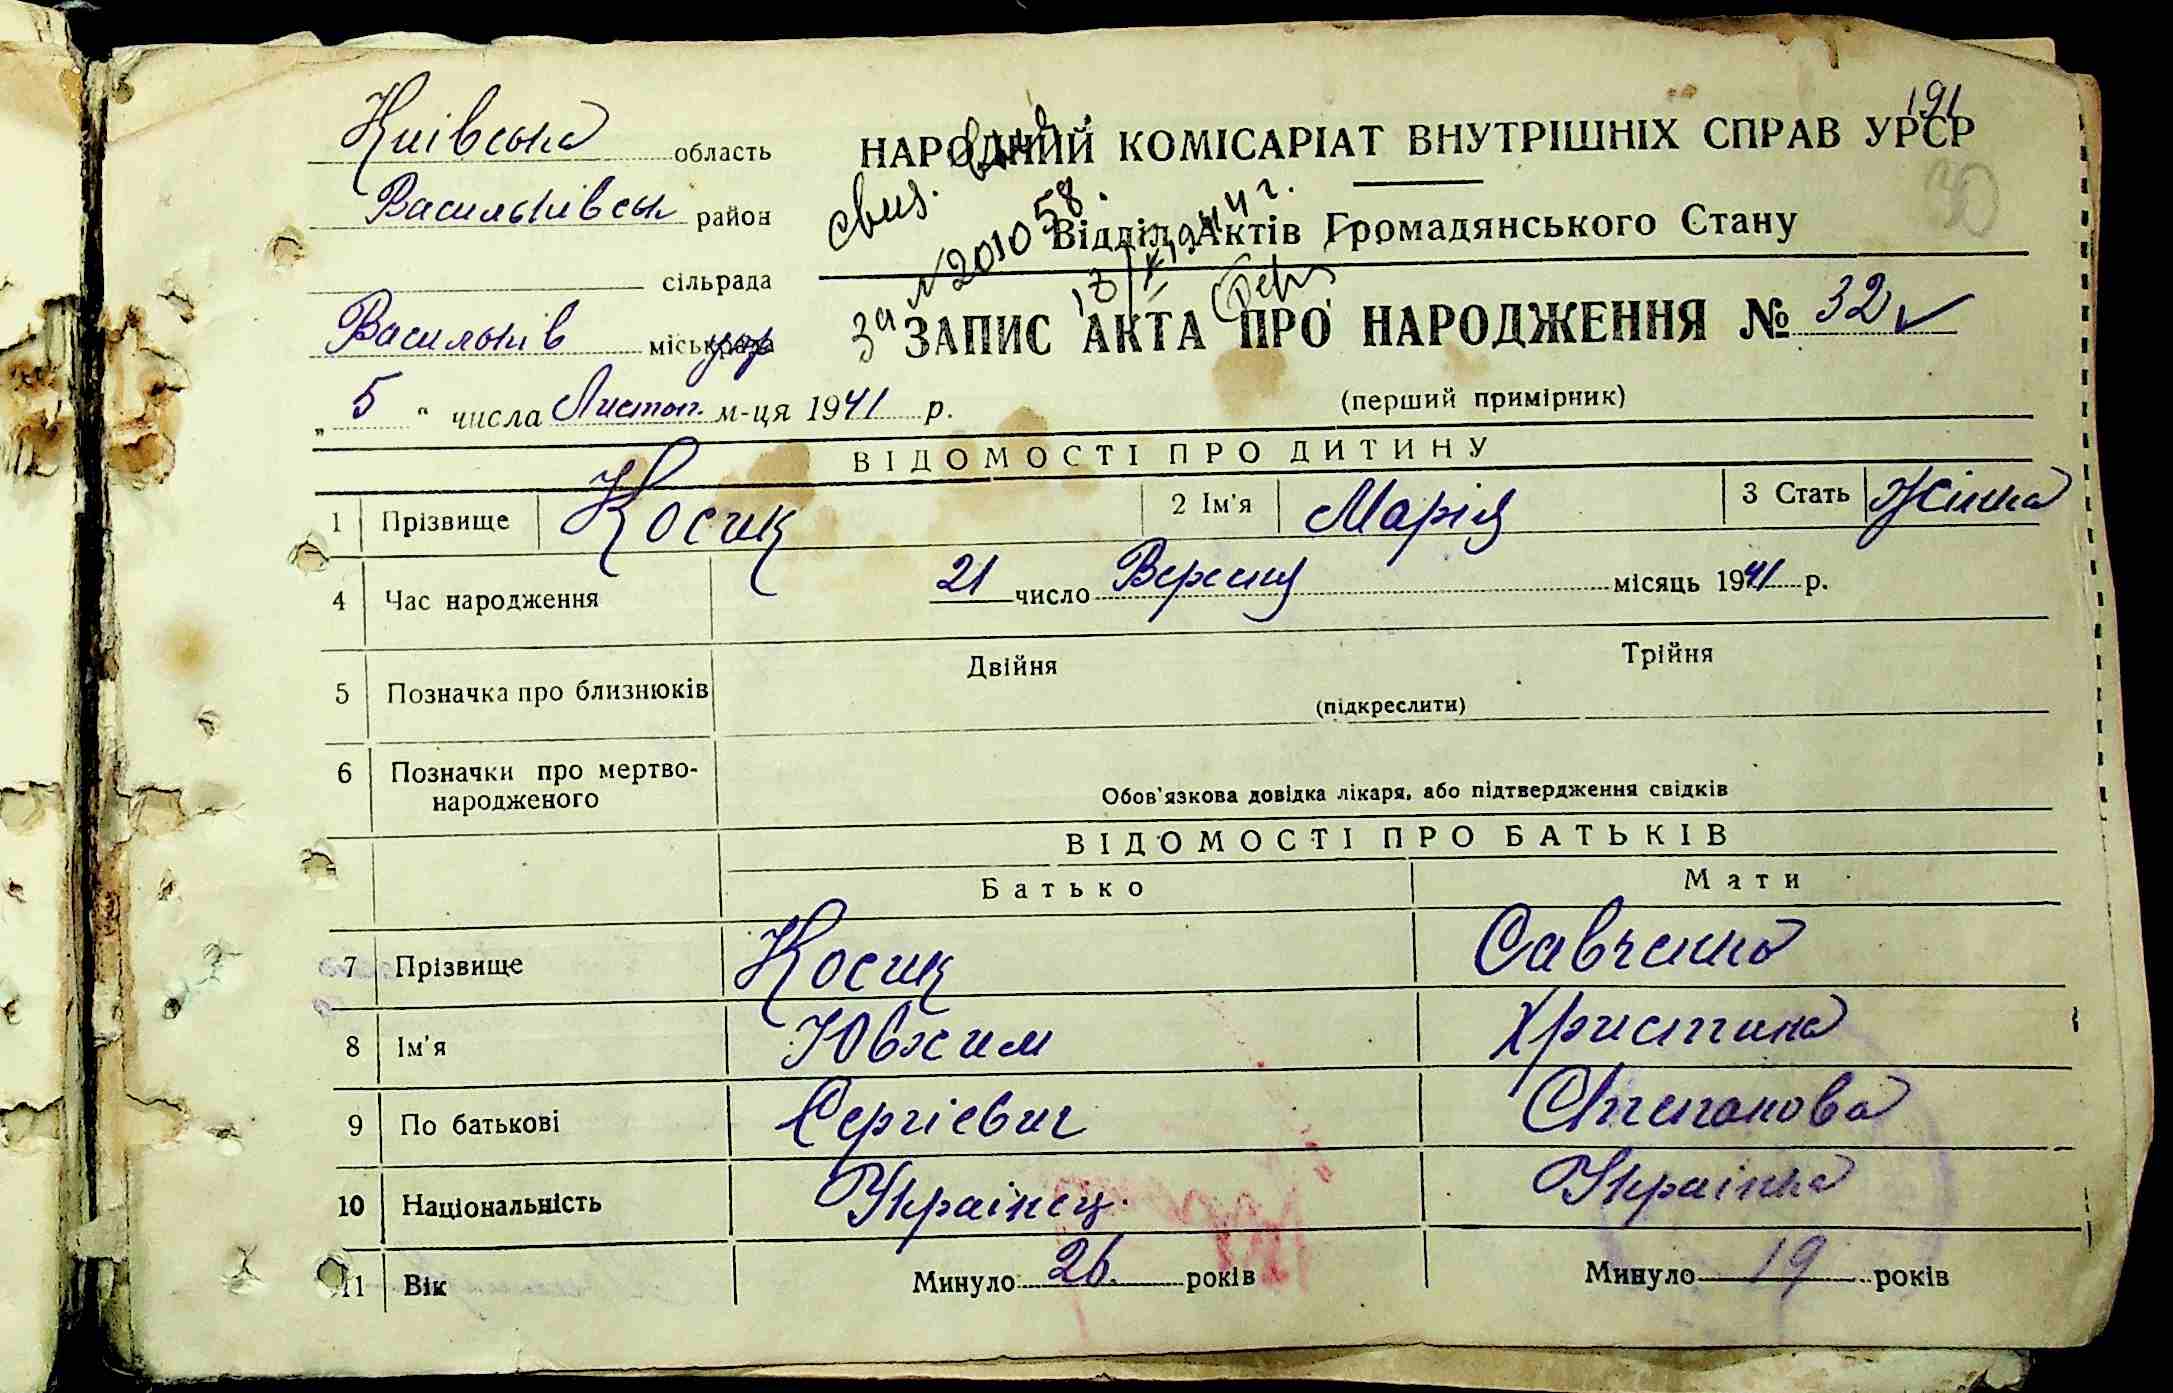 191
Київська область
НАРОДНИЙ КОМІСАРІАТ ВНУТРІШНІХ СПРАВ УРСР
Васильківськ район
Відділ Актів Громадянського Стану
свид.
№201058
сільрада
За
1944 г.
Васильків міськрада
ЗАПИС АКТА ПРО НАРОДЖЕННЯ № 32
„ 5 “ числа Листоп. м-ця 1941 р.
(перший примірник)
ВІДОМОСТІ ПРО ДИТИНУ
1 Прізвище Косик 2 Ім'я Марія 3 Стать Жінка
4 Час народження 21 число Вересня місяць 1941 р.
5 Позначка про близнюків Двійня Трійня
(підкреслити)
6 Позначки про мертво-
народженого
Обов'язкова довідка лікаря, або підтвердження свідків
ВІДОМОСТІ ПРО БАТЬКІВ
Батько Мати
7 Прізвище Косик Савченко
8 Ім'я Ювхим Христина
9 По батькові Сергієвич Степанова
10 Національність Українец. Українка
11 Вік Минуло 26. років Минуло 19 років